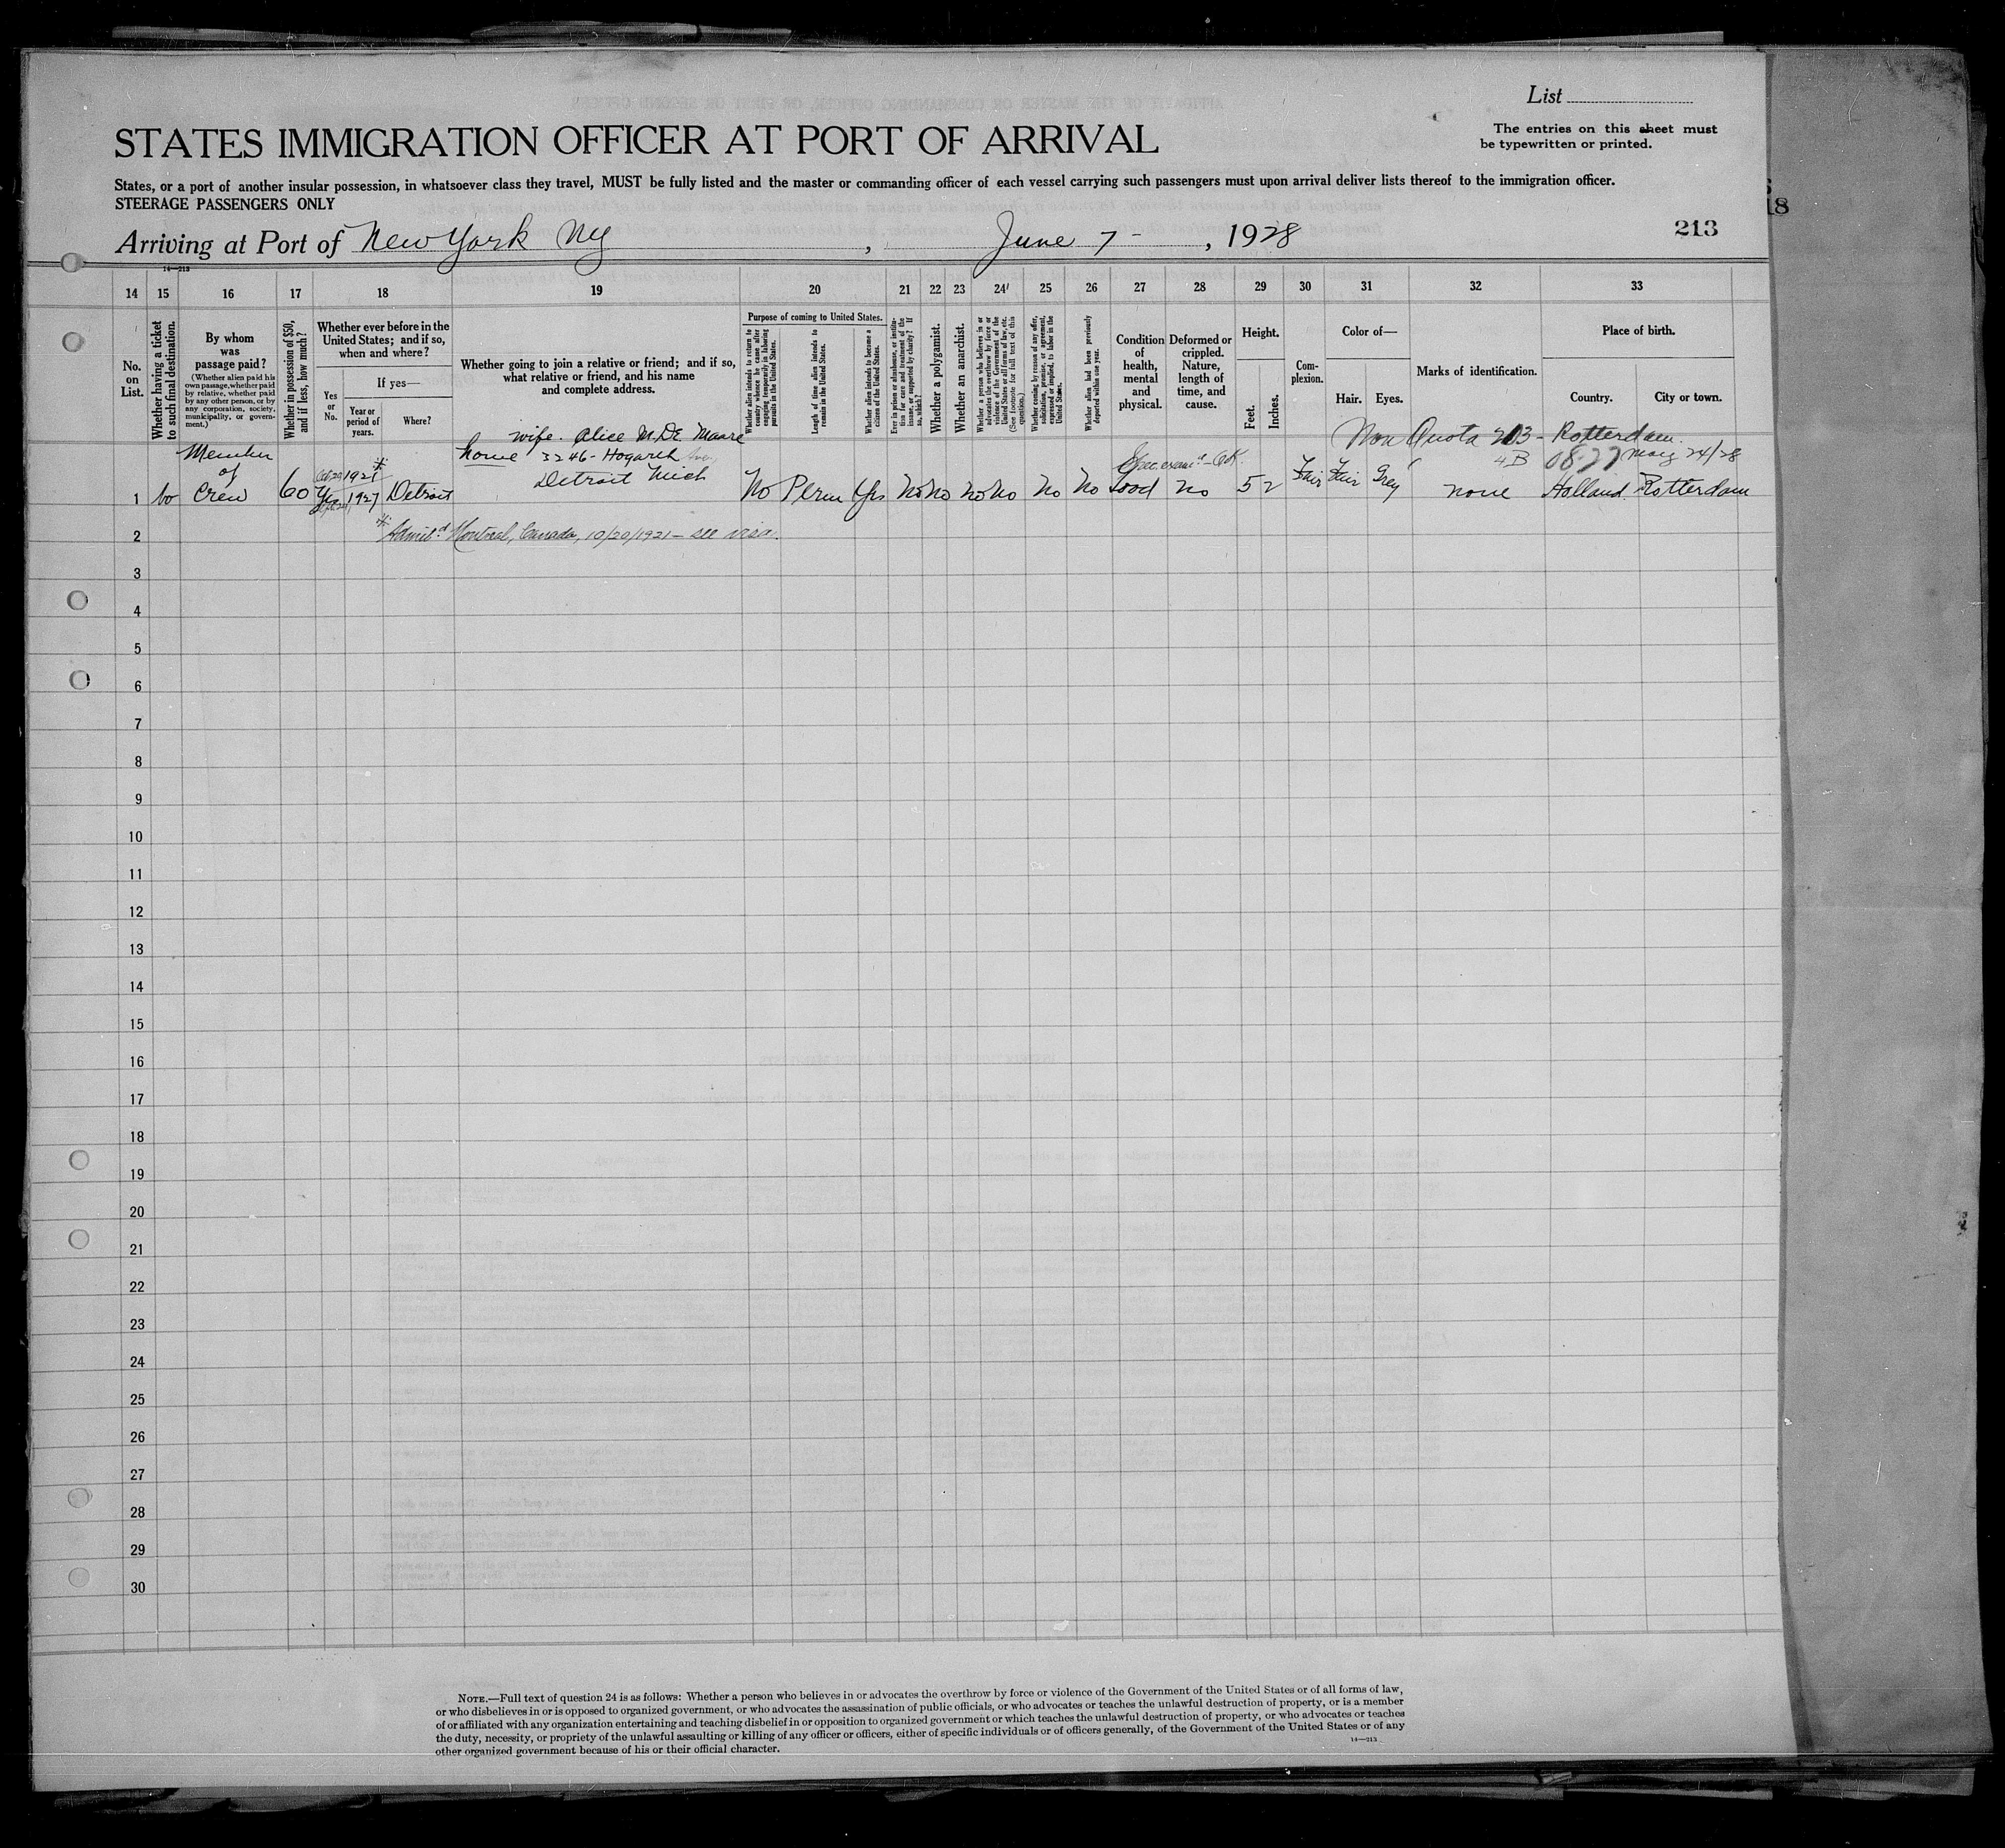 List
The entries on this sheet must
be typewritten or printed.
STATES IMMIGRATION OFFICER AT PORT OF ARRIVAL
States, or a port of another insular possession, in whatsoever class they travel, MUST be fully listed and the master or commanding officer of each vessel carrying such passengers must upon arrival deliver lists thereof to the immigration officer.
STEERAGE PASSENGERS ONLY
18
213
Arriving at Port of New York NY, June 7 -, 1928
14—213
14 15 16 17 18 19 20 21 22 23 24 25 26 27 28 29 30 31 32 33
No.
on
List.
Whether having a ticket
to such final destination.
By whom
was
passage paid?
(Whether alien paid his
own passage, whether paid
by relative, whether paid
by any other person, or by
any corporation, society,
municipality, or govern-
ment.)
Whether in possession of $50,
and if less, how much?
Whether ever before in the
United States; and if so,
when and where?
If yes—
Yes
or
No.
Year or
period of
years.
Where?
Whether going to join a relative or friend; and if so,
what relative or friend, and his name
and complete address.
Purpose of coming to United States.
Whether alien intends to return to
country whence he came after
engaging temporarily in laboring
pursuits in the United States.
Length of time alien intends to
remain in the United States.
Whether alien intends to become a
citizen of the United States.
Ever in prison or almshouse, or institu-
tion for care and treatment of the
insane, or supported by charity? If
so, which?
Whether a polygamist.
Whether an anarchist.
Whether a person who believes in or
advocates the overthrow by force or
violence of the Government of the
United States or all forms of law, etc.
(See footnote for full text of this
question.)
Whether coming by reason of any offer,
solicitation, promise, or agreement,
expressed or implied, to labor in the
United States.
Whether alien had been previously
deported within one year.
Condition
of
health,
mental
and
physical.
Deformed or
crippled.
Nature,
length of
time, and
cause.
Height.
Feet.
Inches.
Com-
plexion.
Color of—
Hair.
Eyes.
Marks of identification.
Place of birth.
Country.
City or town.
wife. Alice M. DE Maare
Non Quota 203 - Rotterdam.
Member
of
Crew
home 3246 - Hogarth
Detroit Mich
4B
May 24/28
1921
1 60 1927 Detroit No Perm Yes No No No No No No Good No 5 2 Fair Fair Grey none Holland Rotterdam
Admit.d Montreal, Canada, 10/20/1921 - see visa.
2
3
4
5
6
7
8
9
10
11
12
13
14
15
16
17
18
19
20
21
22
23
24
25
26
27
28
29
30
NOTE.—Full text of question 24 is as follows: Whether a person who believes in or advocates the overthrow by force or violence of the Government of the United States or of all forms of law,
or who disbelieves in or is opposed to organized government, or who advocates the assassination of public officials, or who advocates or teaches the unlawful destruction of property, or is a member
of or affiliated with any organization entertaining and teaching disbelief in or opposition to organized government or which teaches the unlawful destruction of property, or who advocates or teaches
the duty, necessity, or propriety of the unlawful assaulting or killing of any officer or officers, either of specific individuals or of officers generally, of the Government of the United States or of any
other organized government because of his or their official character.
14—213